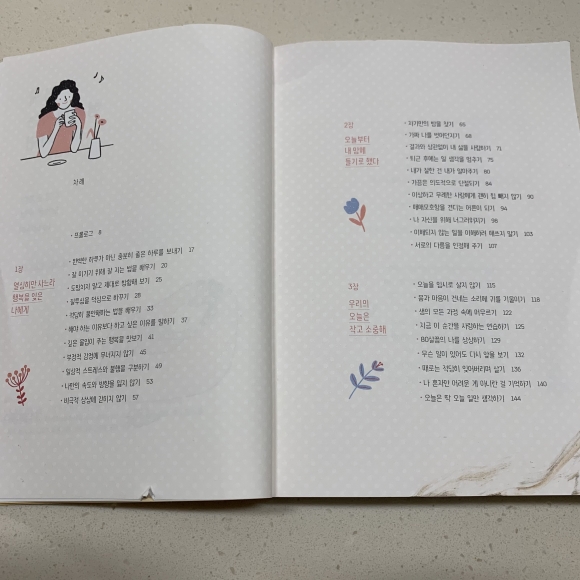 차례
· 프롤로그 8
1장
열심히만 사느라
행복을 잊은
나에게
· 완벽한 하루가 아닌 충분히 좋은 하루를 보내기 17
· 잘 이기기 위해 잘 지는 법을 배우기 20
· 도망치지 말고 제대로 방황해 보기 25
· 질투심을 먹심으로 바꾸기 28
· 적당히 불안해하는 법을 배우기 33
· 해야 하는 이유보다 하고 싶은 이유를 말하기 37
· 깊은 몰입이 주는 행복을 맛보기 41
· 부정적 감정에 무너지지 않기 45
· 일상적 스트레스와 불행을 구분하기 49
· 나만의 속도와 방향을 잃지 않기 53
· 비극적 상상에 갇히지 않기 57
2장
오늘부터
내 맘에
들기로 했다
· 자기만의 방을 갖기 65
· 기꺼이 나를 벗어던지기 68
· 결과와 상관없이 내 삶을 사랑하기 71
· 퇴근 후에는 일 생각을 멈추기 75
· 내가 살찐 건 내가 알아주기 80
· 가끔은 의도적으로 단절되기 84
· 이상하고 무례한 사람에게 괜히 힘 빼지 않기 90
· 애매모호함을 견디는 어른이 되기 94
· 나 자신을 위해 너그러워지기 98
· 이해되지 않는 일을 이해하려 애쓰지 않기 103
· 서로의 다름을 인정해 주기 107
3장
우리의
오늘은
작고 소중해
· 오늘을 임시로 살지 않기 115
· 몸과 마음이 건네는 소리에 귀를 기울이기 118
· 생의 모든 과정 속에 머무르기 122
· 지금 이 순간을 사랑하는 연습하기 125
· 80살쯤의 나를 상상하기 129
· 무슨 일이 있어도 다시 앞을 보기 132
· 때로는 적당히 잊어버리며 살기 136
· 나 혼자만 어려운 게 아니란 걸 기억하기 140
· 오늘은 딱 오늘 일만 생각하기 144